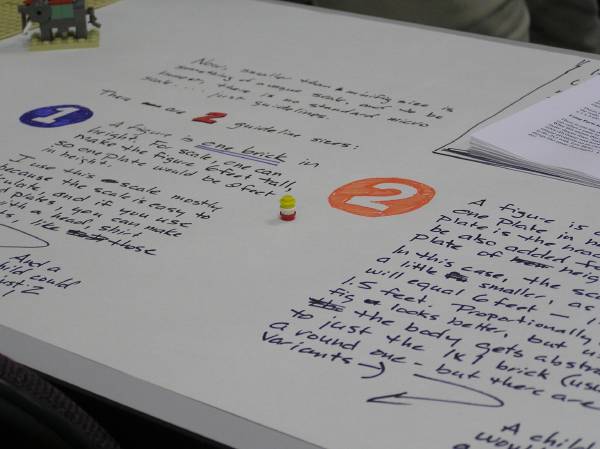 Now, smaller than a minifig size is
something of a unique scale, and to be
honest, there is no standard micro
scale.... just guidelines.
There are 2 guideline sizes:
1
A figure is one brick in
height. For scale, we can
make the figure 6 feet tall,
so one plate would be 2 feet
in height.
I use this scale mostly
because the scale is easy to
and if you use
plates, you can make
with a head, shirt,
like those
And a
child could
just, 2
2
A figure is
one plate in
plate is the head
be also added fo
plate of heig
In this case, the sca
a little smaller, as
will equal 6 feet —
1.5 feet. Proportionally
fig looks better, but u
the body gets abstra
to just the 1x1 brick (usu
a round one — but there are
variants →)
A child
would